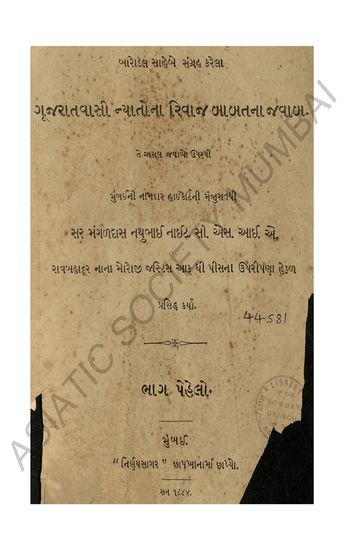 બારોડેલ સાહેબે સંગ્રહ કરેલા
ગૂજરાતવાસી ન્યાતોના રિવાજ બાબતના જવાબ.
તે અસલ જવાબો ઉપરથી
મુંબઈની નામદાર હાઈકોર્ટની મંજુરાતથી
સર મંગળદાસ નથુભાઈ નાઈટ. સી. એસ. આઈ. એ.
રાવબહાદૂર નાના મોરોજી જસ્ટિસ આફ ધી પીસના ઉપરીપણા હેઠળ
પ્રસિદ્ધ કર્યા.
44581
ભાગ પેહેલો.
મુંબઈ.
“નિર્ણયસાગર” છાપખાનામાં છાપ્યો.
સન ૧૮૮૪.
ASIATIC SOCIETY MUMBAI
LIBRARY
BOMBAY
BRANCH